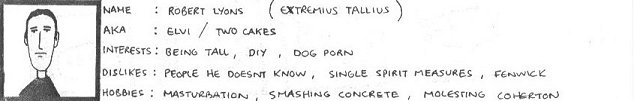 NAME : ROBERT LYONS ( EXTREMIUS TALLIUS )
AKA : ELVI / TWO CAKES
INTERESTS : BEING TALL , DIY , DOG PORN
DISLIKES : PEOPLE HE DOESNT KNOW , SINGLE SPIRIT MEASURES , FENWICK
HOBBIES : MASTURBATION , SMASHING CONCRETE , MOLESTING COHERTON